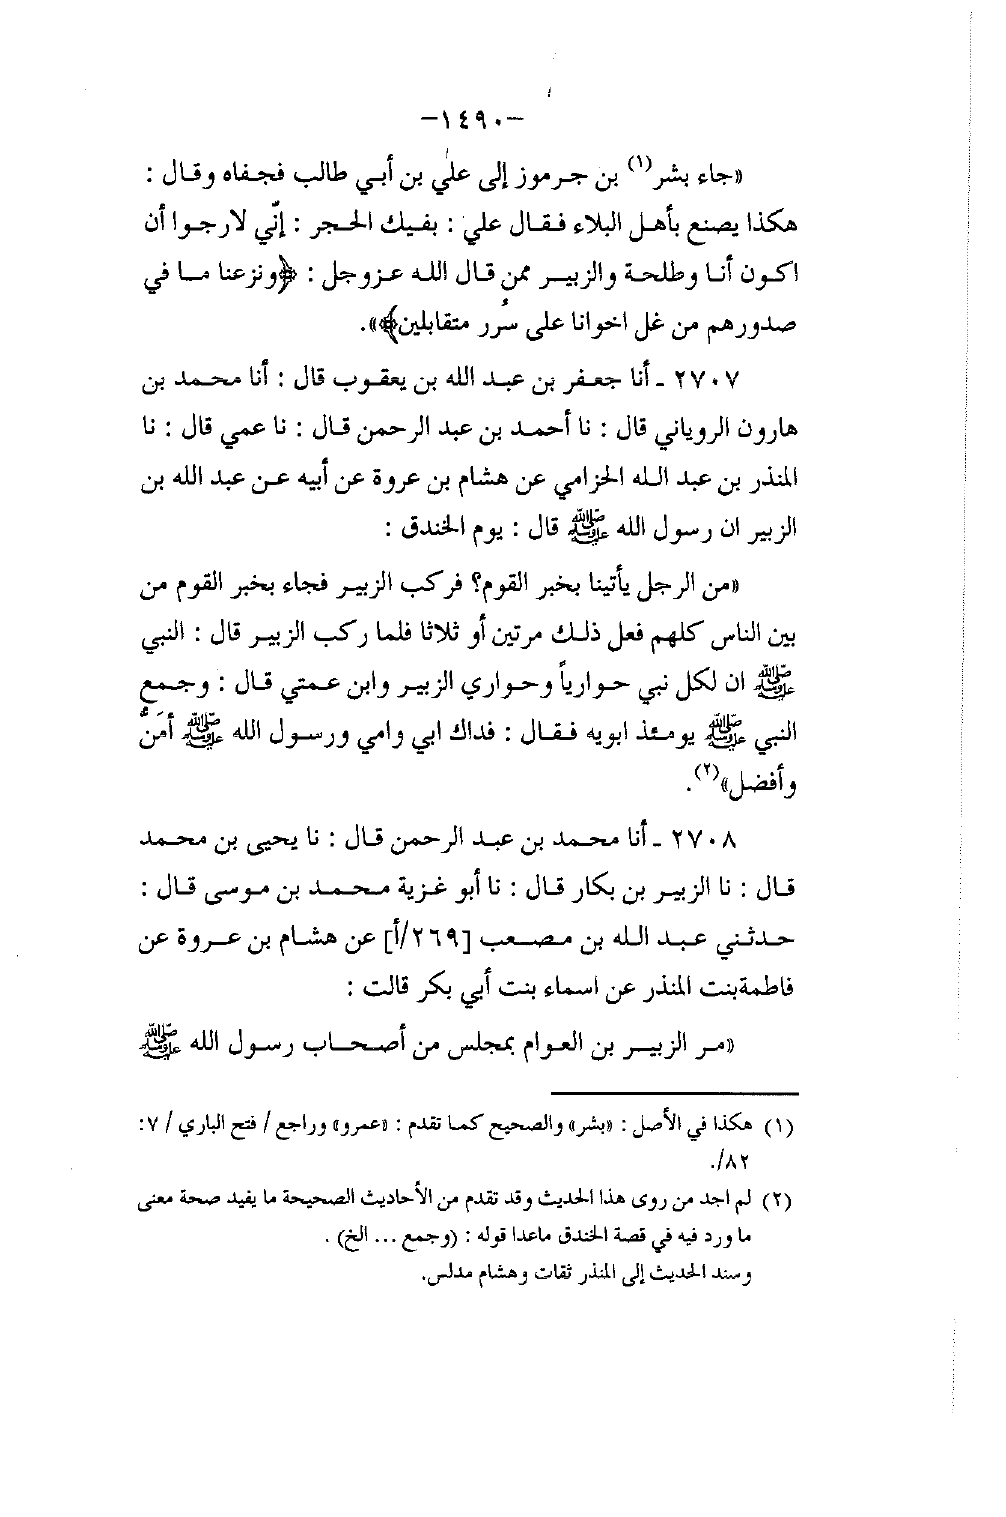 -١٤٩٠-
«جاء بشر(١) بن جرموز إلى علي بن أبي طالب فجفاه وقال :
هكذا يصنع بأهل البلاء فقال علي : بفيك الحجر : إنّي لارجوا أن
اكون أنا وطلحة والزبير ممن قال الله عزوجل : ﴿ونزعنا ما في
صدورهم من غل اخوانا على سُرر متقابلين﴾».
٢٧٠٧ ـ أنا جعفر بن عبد الله بن يعقوب قال : أنا محمد بن
هارون الروياني قال : نا أحمد بن عبد الرحمن قال : نا عمي قال : نا
المنذر بن عبد الله الحزامي عن هشام بن عروة عن أبيه عن عبد الله بن
الزبير ان رسول الله ﷺ قال : يوم الخندق :
«من الرجل يأتينا بخبر القوم؟ فركب الزبير فجاء بخبر القوم من
بين الناس كلهم فعل ذلك مرتين أو ثلاثا فلما ركب الزبير قال : النبي
ﷺ ان لكل نبي حوارياً وحواري الزبير وابن عمتي قال : وجمع
النبي ﷺ يومئذ ابويه فقال : فداك ابي وامي ورسول الله ﷺ أمَنُّ
وأفضل»(٢).
٢٧٠٨ ـ أنا محمد بن عبد الرحمن قال : نا يحيى بن محمد
قال : نا الزبير بن بكار قال : نا أبو غزية محمد بن موسى قال :
حدثني عبد الله بن مصعب [٢٦٩/أ] عن هشام بن عروة عن
فاطمةبنت المنذر عن اسماء بنت أبي بكر قالت :
«مر الزبير بن العوام بمجلس من أصحاب رسول الله ﷺ
(١) هكذا في الأصل : «بشر» والصحيح كما تقدم : «عمرو» وراجع / فتح الباري / ٧:
٨٢/.
(٢) لم اجد من روى هذا الحديث وقد تقدم من الأحاديث الصحيحة ما يفيد صحة معنى
ما ورد فيه في قصة الخندق ماعدا قوله : (وجمع ... الخ) .
وسند الحديث إلى المنذر ثقات وهشام مدلس.